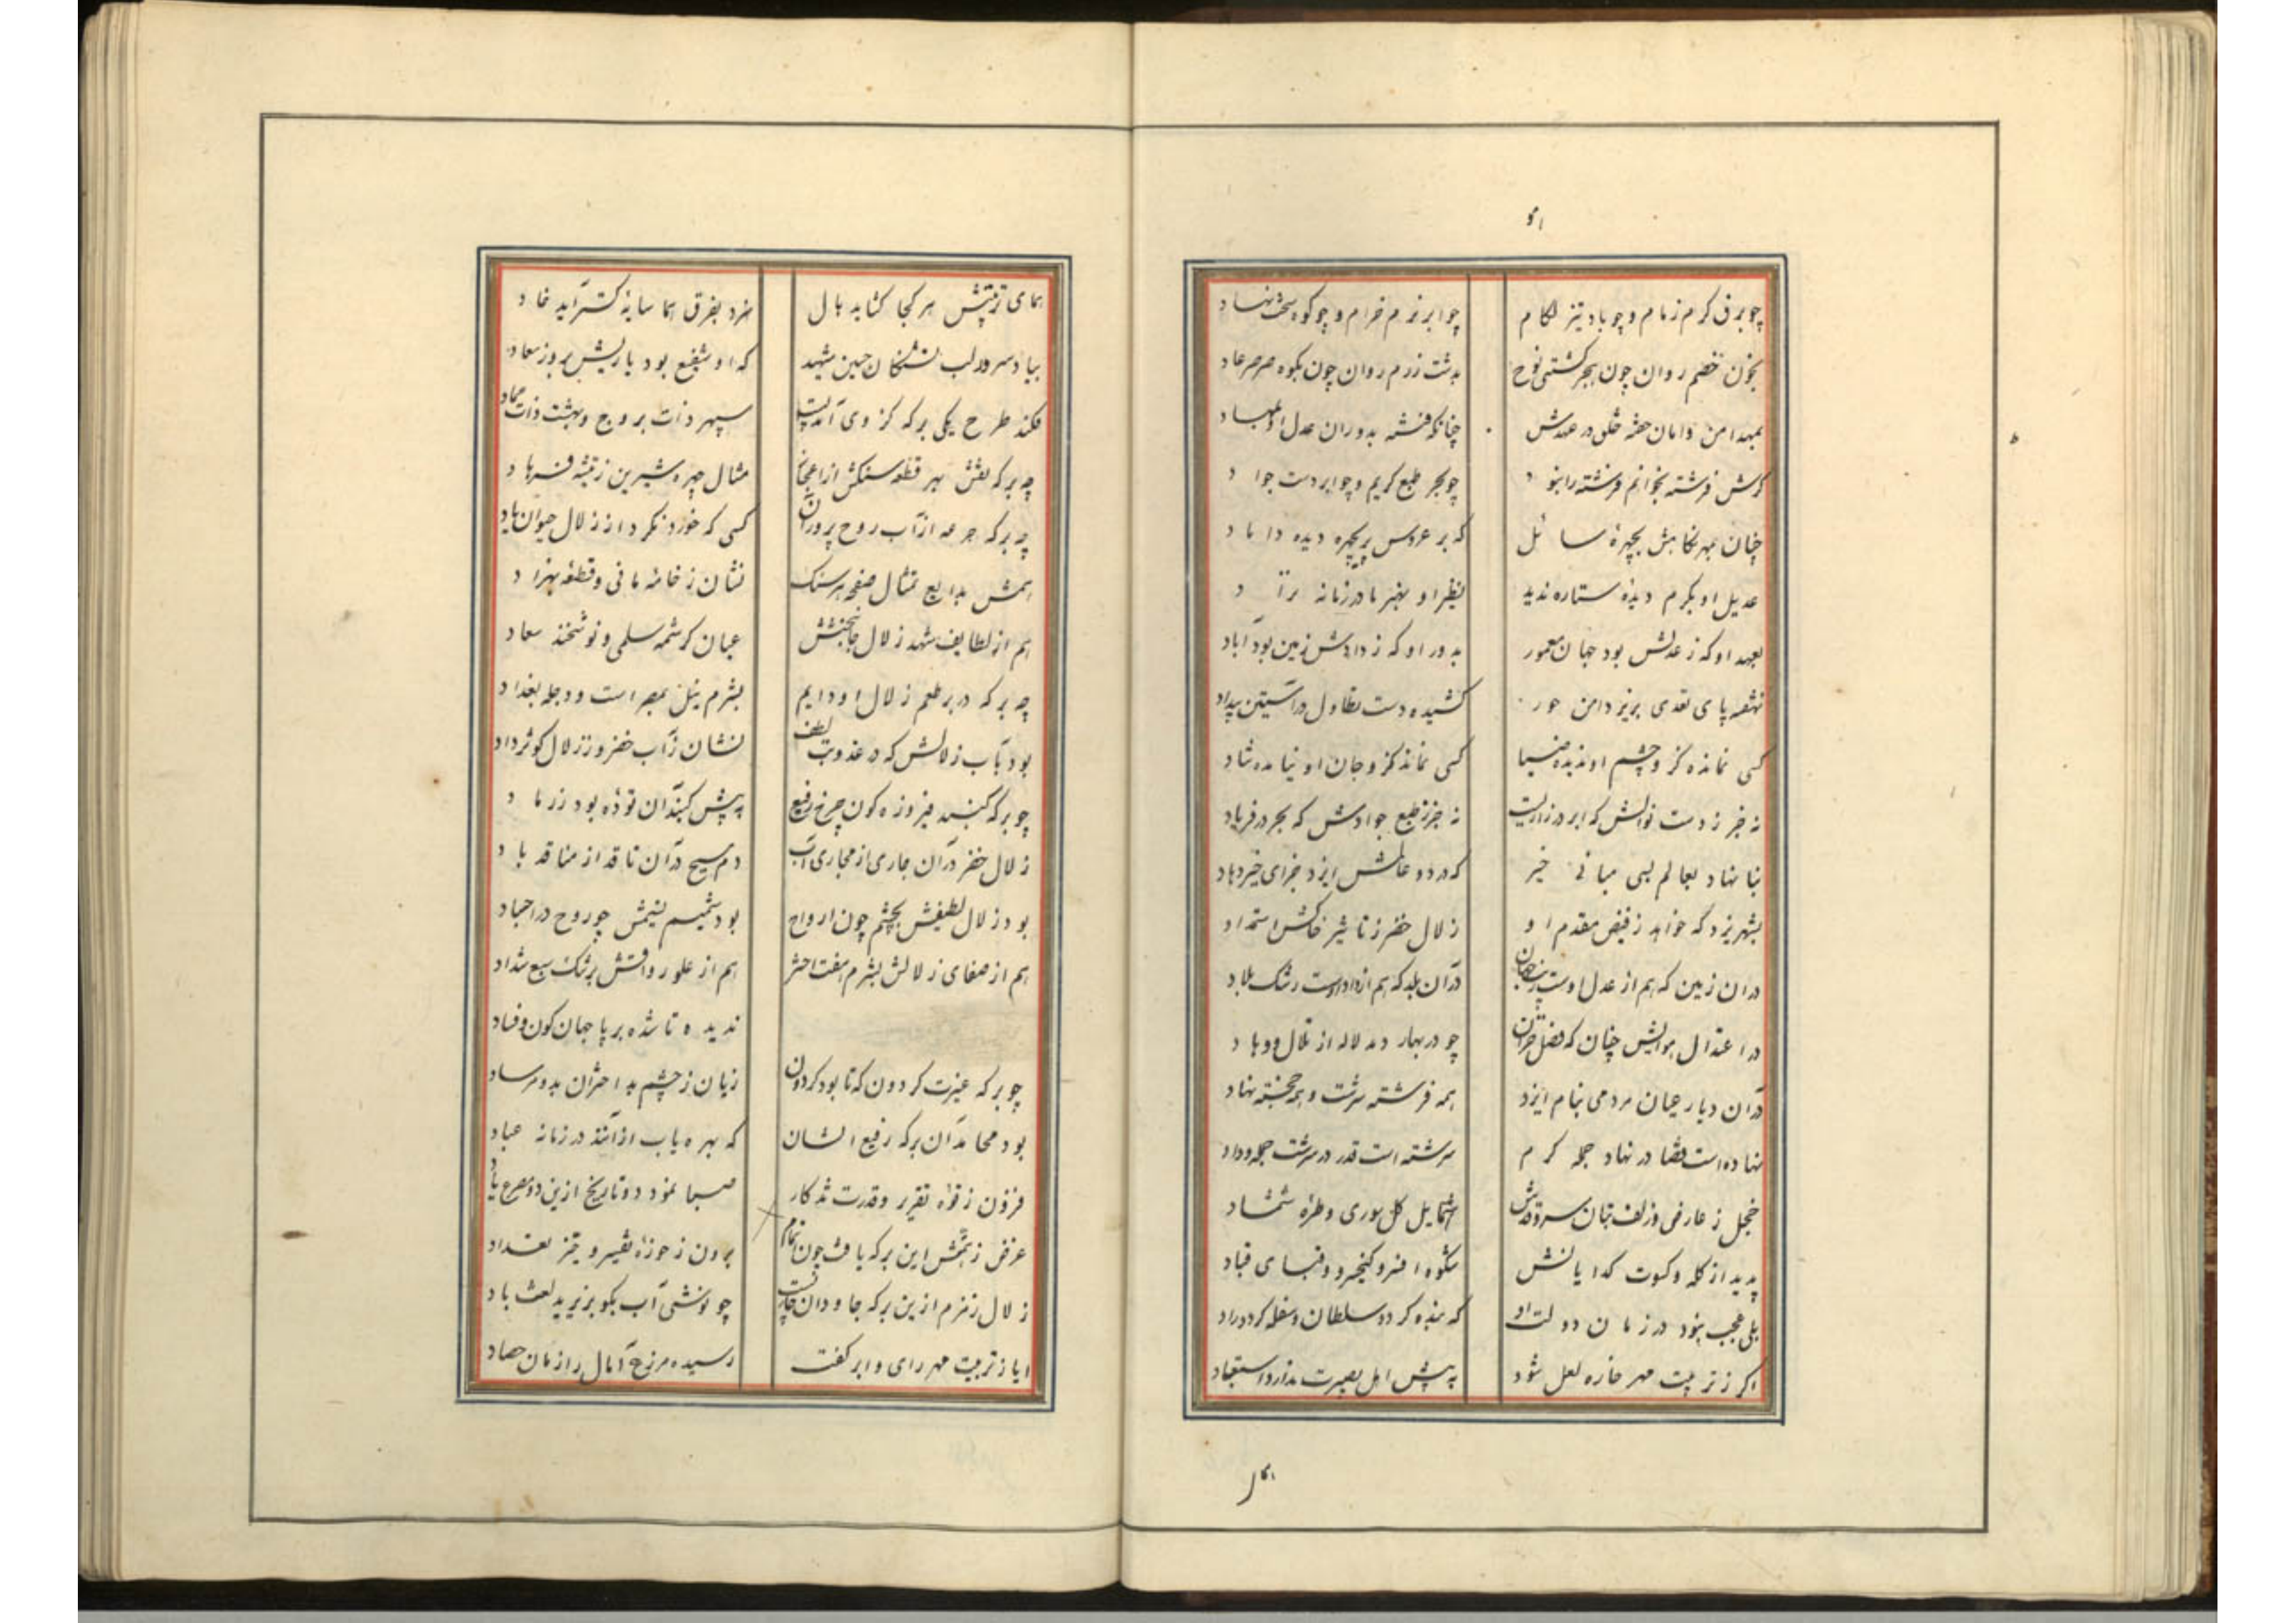 چو برق گرم زمام و چو باد تیز لکام چو ابر نرم خرام و چو کوه سخت نهاد
بخون خصم روان چون ببحر کشتی نوح بدشت رزم روان چون بکوه صرصر عاد
بمهد امن و امان خفته خلق در عهدش چنانکه فتنه بدوران عدل او
کرش فرشته بخوانم فرشته را نبود چو بحر طبع کریم و چو ابر دست جواد
چنان بمهر نکاهش بچهرهٔ سائل که بر عروس پریچهره دیده داماد
عدیل او بکرم دیدهٔ ستاره ندید نظیر او بهنر مادر زمانه نزاد
بعهد او که ز عدلش بود جهان معمور بدور او که ز دادش زمین بود آباد
نهفته پای تعدی بزیر دامن جور کشیده دست تطاول در آستین بیداد
کسی نمانده کز و چشم او ندیده ضیا کسی نماند کز و جان او نیامده شاد
نه جز ز دست نوالش که ابر در زاریست نه جز ز طبع جوادش که بحر در فریاد
بنا نهاد بعالم بسی مبانی خیر که در دو عالمش ایزد جزای خیر دهاد
بشهر یزد که خواهد ز فیض مقدم او زلال خضر ز تاثیر خاکش استمداد
در ان زمین که هم از عدل اوست در آن بلد که هم از داد اوست رشک بلاد
در اعتدال هوایش چنان که فصل خزان چو در بهار دمد لاله از تلال و وهاد
در آن دیار عیان مردمی بنام ایزد همه فرشته سرشت و همه خجسته نهاد
نهاده است قضا در نهاد جمله کرم سرشته است قدر در سرشت جمله وداد
خجل ز عارض و زلف بتان سروقدش شمایل کل سوری و طرهٔ شمشاد
پدید از کله و کسوت کدایانش شکوه افسر و کیخسرو و قبای قباد
بلی عجب نبود در زمان دولت او که بنده کردد سلطان و سفله کردد راد
اکر ز تربیت مهر خاره لعل شود به پیش اهل بصیرت ندارد استبعاد
همای تربیتش هر کجا کشاید بال سزد بفرق هما سایه کستر آید خاد
بیاد سرور لب تشنکان حسین شهید که او شفیع بود یاریش بروز معاد
فکند طرح یکی برکه کز وی آمد پست سپهر ذات بروج و بهشت ذات عماد
چه برکه نقش بهر قطعه سنکش از اعجاز مثال چهره شیرین ز تیشه فرهاد
چه برکه جرعه از آب روح پرور آن کسی که خورد نکرد از زلال حیوان یاد
همش بدایع تمثال صفحه هر سنک نشان ز خامهٔ مانی و قطعهٔ بهزاد
هم از لطایف شهد زلال جانبخشش عیان کرشمه سلمی و نوشخند سعاد
چه برکه در بر طعم زلال او دایم بشرم نیل بمصر است و دجله بغداد
بود بآب زلالش که در عذوبت لطف نشان ز آب خضر و ز زلال کوثر داد
چو برکه کنبد فیروزه کون چرخ رفیع به پیش کنبد آن توده بود ز رماد
زلال خضر در آن جاری از مجاری آب دم مسیح در آن نافذ از منافذ باد
بود زلال لطیفش بچشم چون ارواح بود شمیم نسیمش چو روح در اجساد
هم از صفای زلالش بشرم هفت اختر هم از علو رواقش برشک سبع شداد
چو برکه غیرت کردون که تا بود کردون ندیده تا شده بر پا جهان کون و فساد
بود محامد آن برکه رفیع الشان زیان ز چشم بد اختران بدو مرساد
فزون ز قوهٔ تقریر و قدرت تذکار که بهره یاب از آنند در زمانه عباد
غرض ز همتش این برکه یافت چون اتمام صبا نمود دو تاریخ ازین دو مصرع یاد
زلال زمزم ازین برکه جاودان برون ز حوزهٔ تفسیر و حیز تعداد
ایا ز تربیت مهر رای و ابر کفت چو نوشی آب بکو بر یزید لعنت باد
رسیده مزرع آمال را زمان حصاد